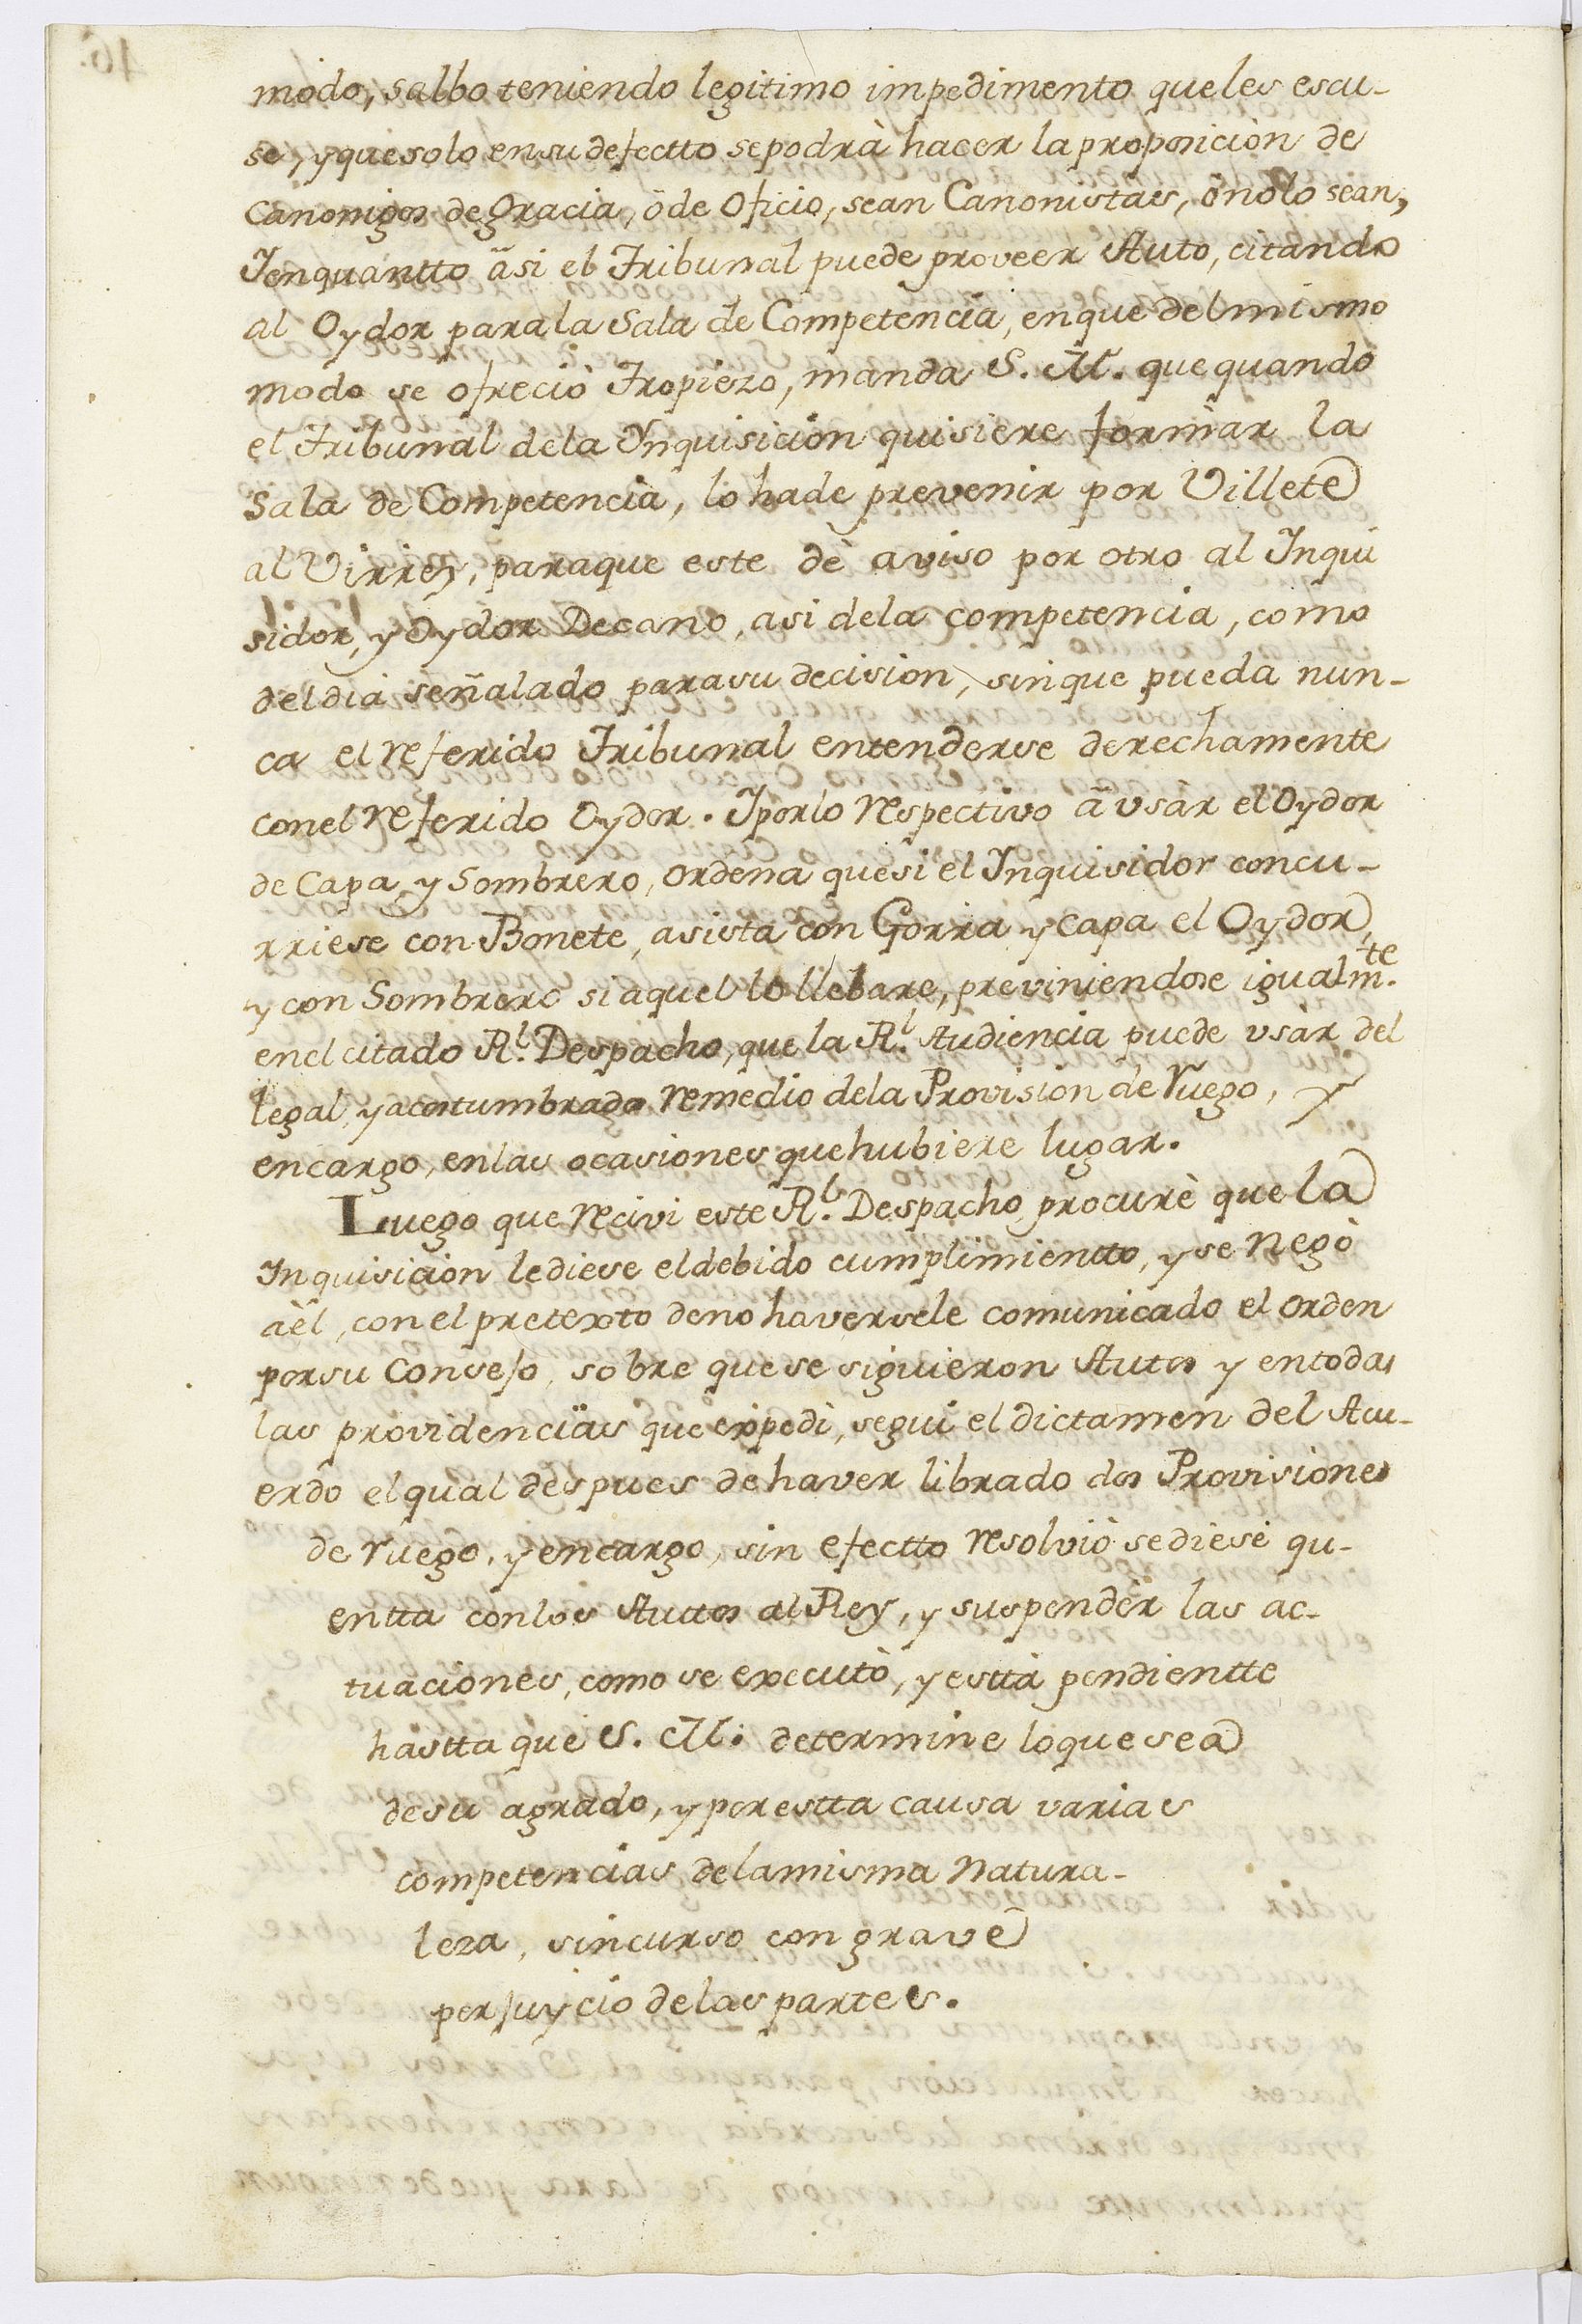 modo, salbo teniendo legitimo impedimento que les escu-
se, y que solo en su defectto se podrà hacer la proposiciòn de
Canonigos de gracia, ö de Oficio, sean Canonistas, ö no lo sean,
Y en quantto äsi el Tribunal puede proveer Auto, citando
al Oydor para la Sala de Competencia, en que del mismo
modo se ofreciò Tropiezo, manda S. M. que quando
el Tribunal de la Ynquisicion quisiere formàr la
Sala de Competencia, lo ha de prevenir por Villete
al Virrey, para que este dè aviso por otro al Inqui
sidor, y Oydor Decano, asi de la competencia, como
del dia señalado para su decision, sin que pueda nun-
ca el referido Tribunal entenderse derechamente
con el referido Oydor. Y por lo respectivo ä vsàr el Oydor
de Capa y Sombrero, ordena que si el Inquisidor concu-
rriese con Bonete, asista con Gorra y Capa el Oydor,
y con Sombrero si aquel lo llebare, previniendose igualm.te
en el citado Rl. Despacho, que la Rl. Audiencia puede vsàr del
legal, y acostumbrado remedio de la Provision de ruego, y
encargo, en las ocasiones que hubiere lugar.
Luego que recivi este Rl. Despacho procurè que la
Inquisicion le diese el debido cumplimientto, y se negò
ä èl, con el pretexto de no haversele comunicado el orden
por su Consejo, sobre que se siguieron Autos y en todas
las providencïas que expedi, segui el dictamen del Acu-
erdo el qual despues de haver librado dos Provisiones
de ruego, y encargo, sin efectto resolviò se diese qu-
entta con los Auttos al Rey, y suspendèr las ac-
tuaciones, como se executò, y esttà pendientte
hastta que S. M. determine lo que sea
de su agrado, y por estta causa varias
competencias de la misma natura-
leza, sin curso con grave
perjuycio de las partes.